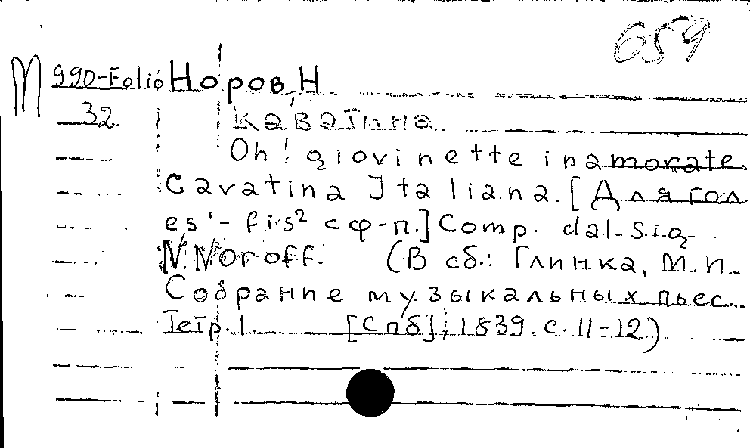 659
М 990-Folio Норов, Н
32 Каватина
Oh! giovinette inamorate
Cavatina Italiana. [Для гол.
es' - fis² с ф-п.] Comp. dal Sig.
N. Noroff. (В сб.: Глинка, М.И.
Собрание музыкальных пьес.
Тетр. 1. [Спб], 1839. с. 11-12)